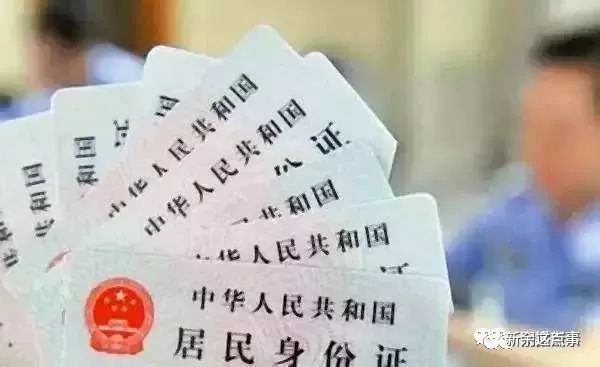 国
中华人民共和国
中华人民共和国
份证
共和国
中华人民共和国
证
中华人民共和国
居民身份证
新余这点事